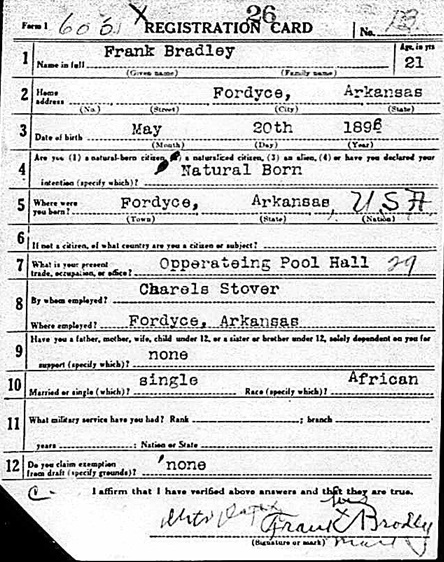 26
Form 1 REGISTRATION CARD No.
1 Frank Bradley Age, in yrs.
Name in full 21
(Given name) (Family name)
2 Home address Fordyce, Arkansas
(No.) (Street) (City) (State)
3 Date of birth May 20th 1896
(Month) (Day) (Year)
4 Are you (1) a natural-born citizen, a naturalized citizen, (3) an alien, (4) or have you declared your
intention (specify which)? Natural Born
5 Where were you born? Fordyce, Arkansas, USA
(Town) (State) (Nation)
6
If not a citizen, of what country are you a citizen or subject?
7 What is your present trade, occupation, or office? Opperateing Pool Hall 29
8 Charels Stover
By whom employed?
Where employed? Fordyce, Arkansas
9 Have you a father, mother, wife, child under 12, or a sister or brother under 12, solely dependent on you for
support (specify which)? none
10 Married or single (which)? single Race (specify which)? African
11 What military service have you had? Rank ; branch
years ; Nation or State
12 Do you claim exemption from draft (specify grounds)? none
I affirm that I have verified above answers and that they are true.
his
Frank X Bradley
(Signature or mark) mark